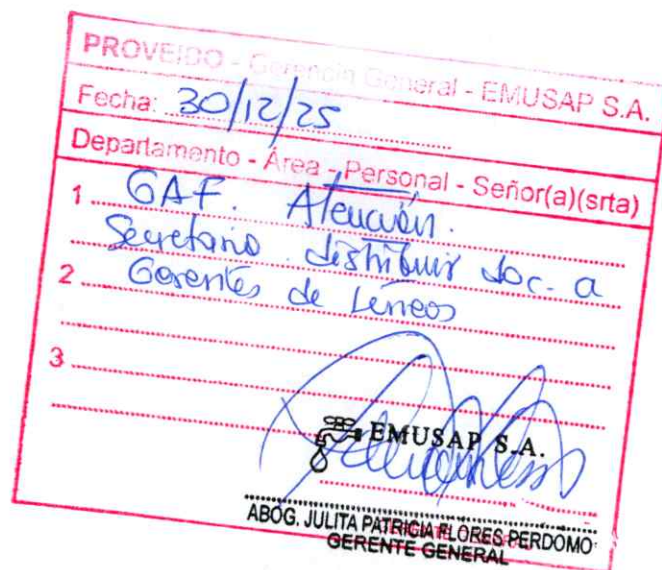 PROVEIDO - Gerencia General - EMUSAP S.A.
Fecha: 30/12/25
Departamento - Área - Personal - Señor(a)(srta)
1 GAF. Atención.
Secretaria distribuir doc. a
2 Gerentes de Líneas
3
EMUSAP S.A.
ABOG. JULITA PATRICIA FLORES PERDOMO
GERENTE GENERAL